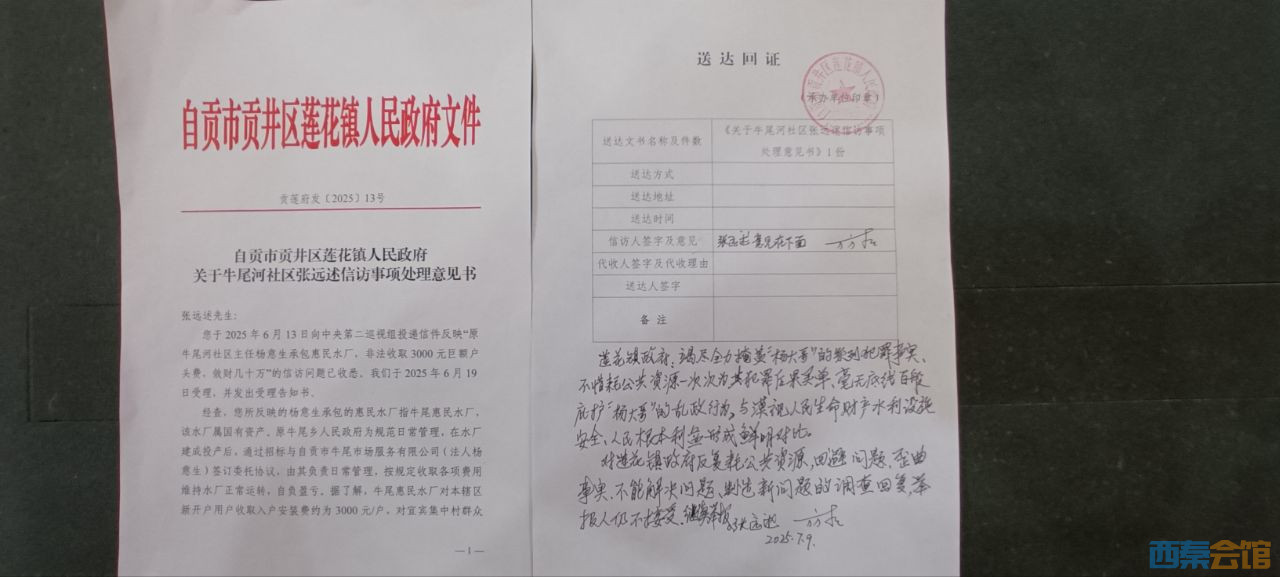 自贡市贡井区莲花镇人民政府文件
贡莲府发〔2025〕13号
自贡市贡井区莲花镇人民政府
关于牛尾河社区张远述信访事项处理意见书
张远述先生：
您于 2025 年 6 月 13 日向中央第二巡视组投递信件反映“原
牛尾河社区主任杨意生承包惠民水厂，非法收取 3000 元巨额户
头费，敛财几十万”的信访问题已收悉。我们于 2025 年 6 月 19
日受理，并发出受理告知书。
经查，您所反映的杨意生承包的惠民水厂指牛尾惠民水厂，
该水厂属国有资产。原牛尾乡人民政府为规范日常管理，在水厂
建成投产后，通过招标与自贡市牛尾市场服务有限公司（法人杨
意生）签订委托协议，由其负责日常管理，按规定收取各项费用
维持水厂正常运转，自负盈亏。据了解，牛尾惠民水厂对本辖区
新开户用户收取入户安装费约为 3000 元/户，对宜宾集中村群众
—1—
送达回证
区莲花镇人民
（承办单位印章）
送达文书名称及件数
《关于牛尾河社区张远述信访事项
处理意见书》1 份
送达方式
送达地址
送达时间
信访人签字及意见
张远述意见在下面
代收人签字及代收理由
送达人签字
备 注
莲花镇政府，竭尽全力掩盖“杨大哥”的系列犯罪事实、
不惜耗公共资源一次次为其犯罪后果买单、毫无底线百般
庇护“杨大哥”的乱政行为，与漠视人民生命财产水利设施
安全、人民根本利益形成鲜明对比。
对莲花镇政府反复耗公共资源，回避问题、歪曲
事实、不能解决问题、制造新问题的调查回复，举
报人仍不接受，继续举报
张远述
2025.7.9.
西秦会馆